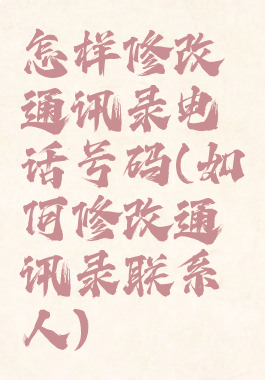 怎样修改
通讯录电
话号码(如
何修改通
讯录联系
人)